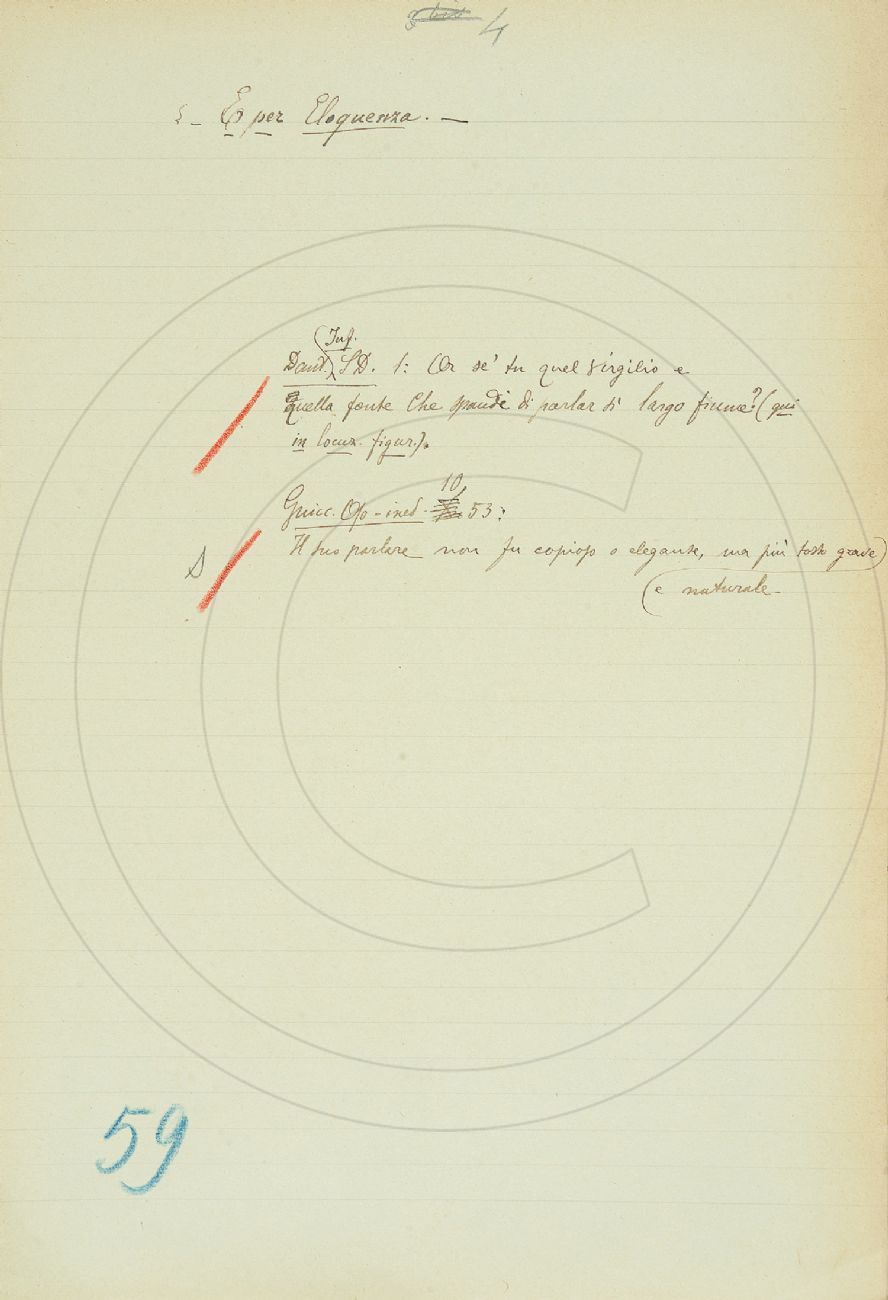 4
§ – E per Eloquenza. –
(Inf.
Dant. SD. 1: Or se' tu quel Virgilio e
quella fonte Che spande di parlar sì largo fiume? (qui
in locuz. figur.).
10,
Guicc. Op. ined. 53:
Il suo parlare non fu copioso o elegante, ma più tosto grave
e naturale.
59